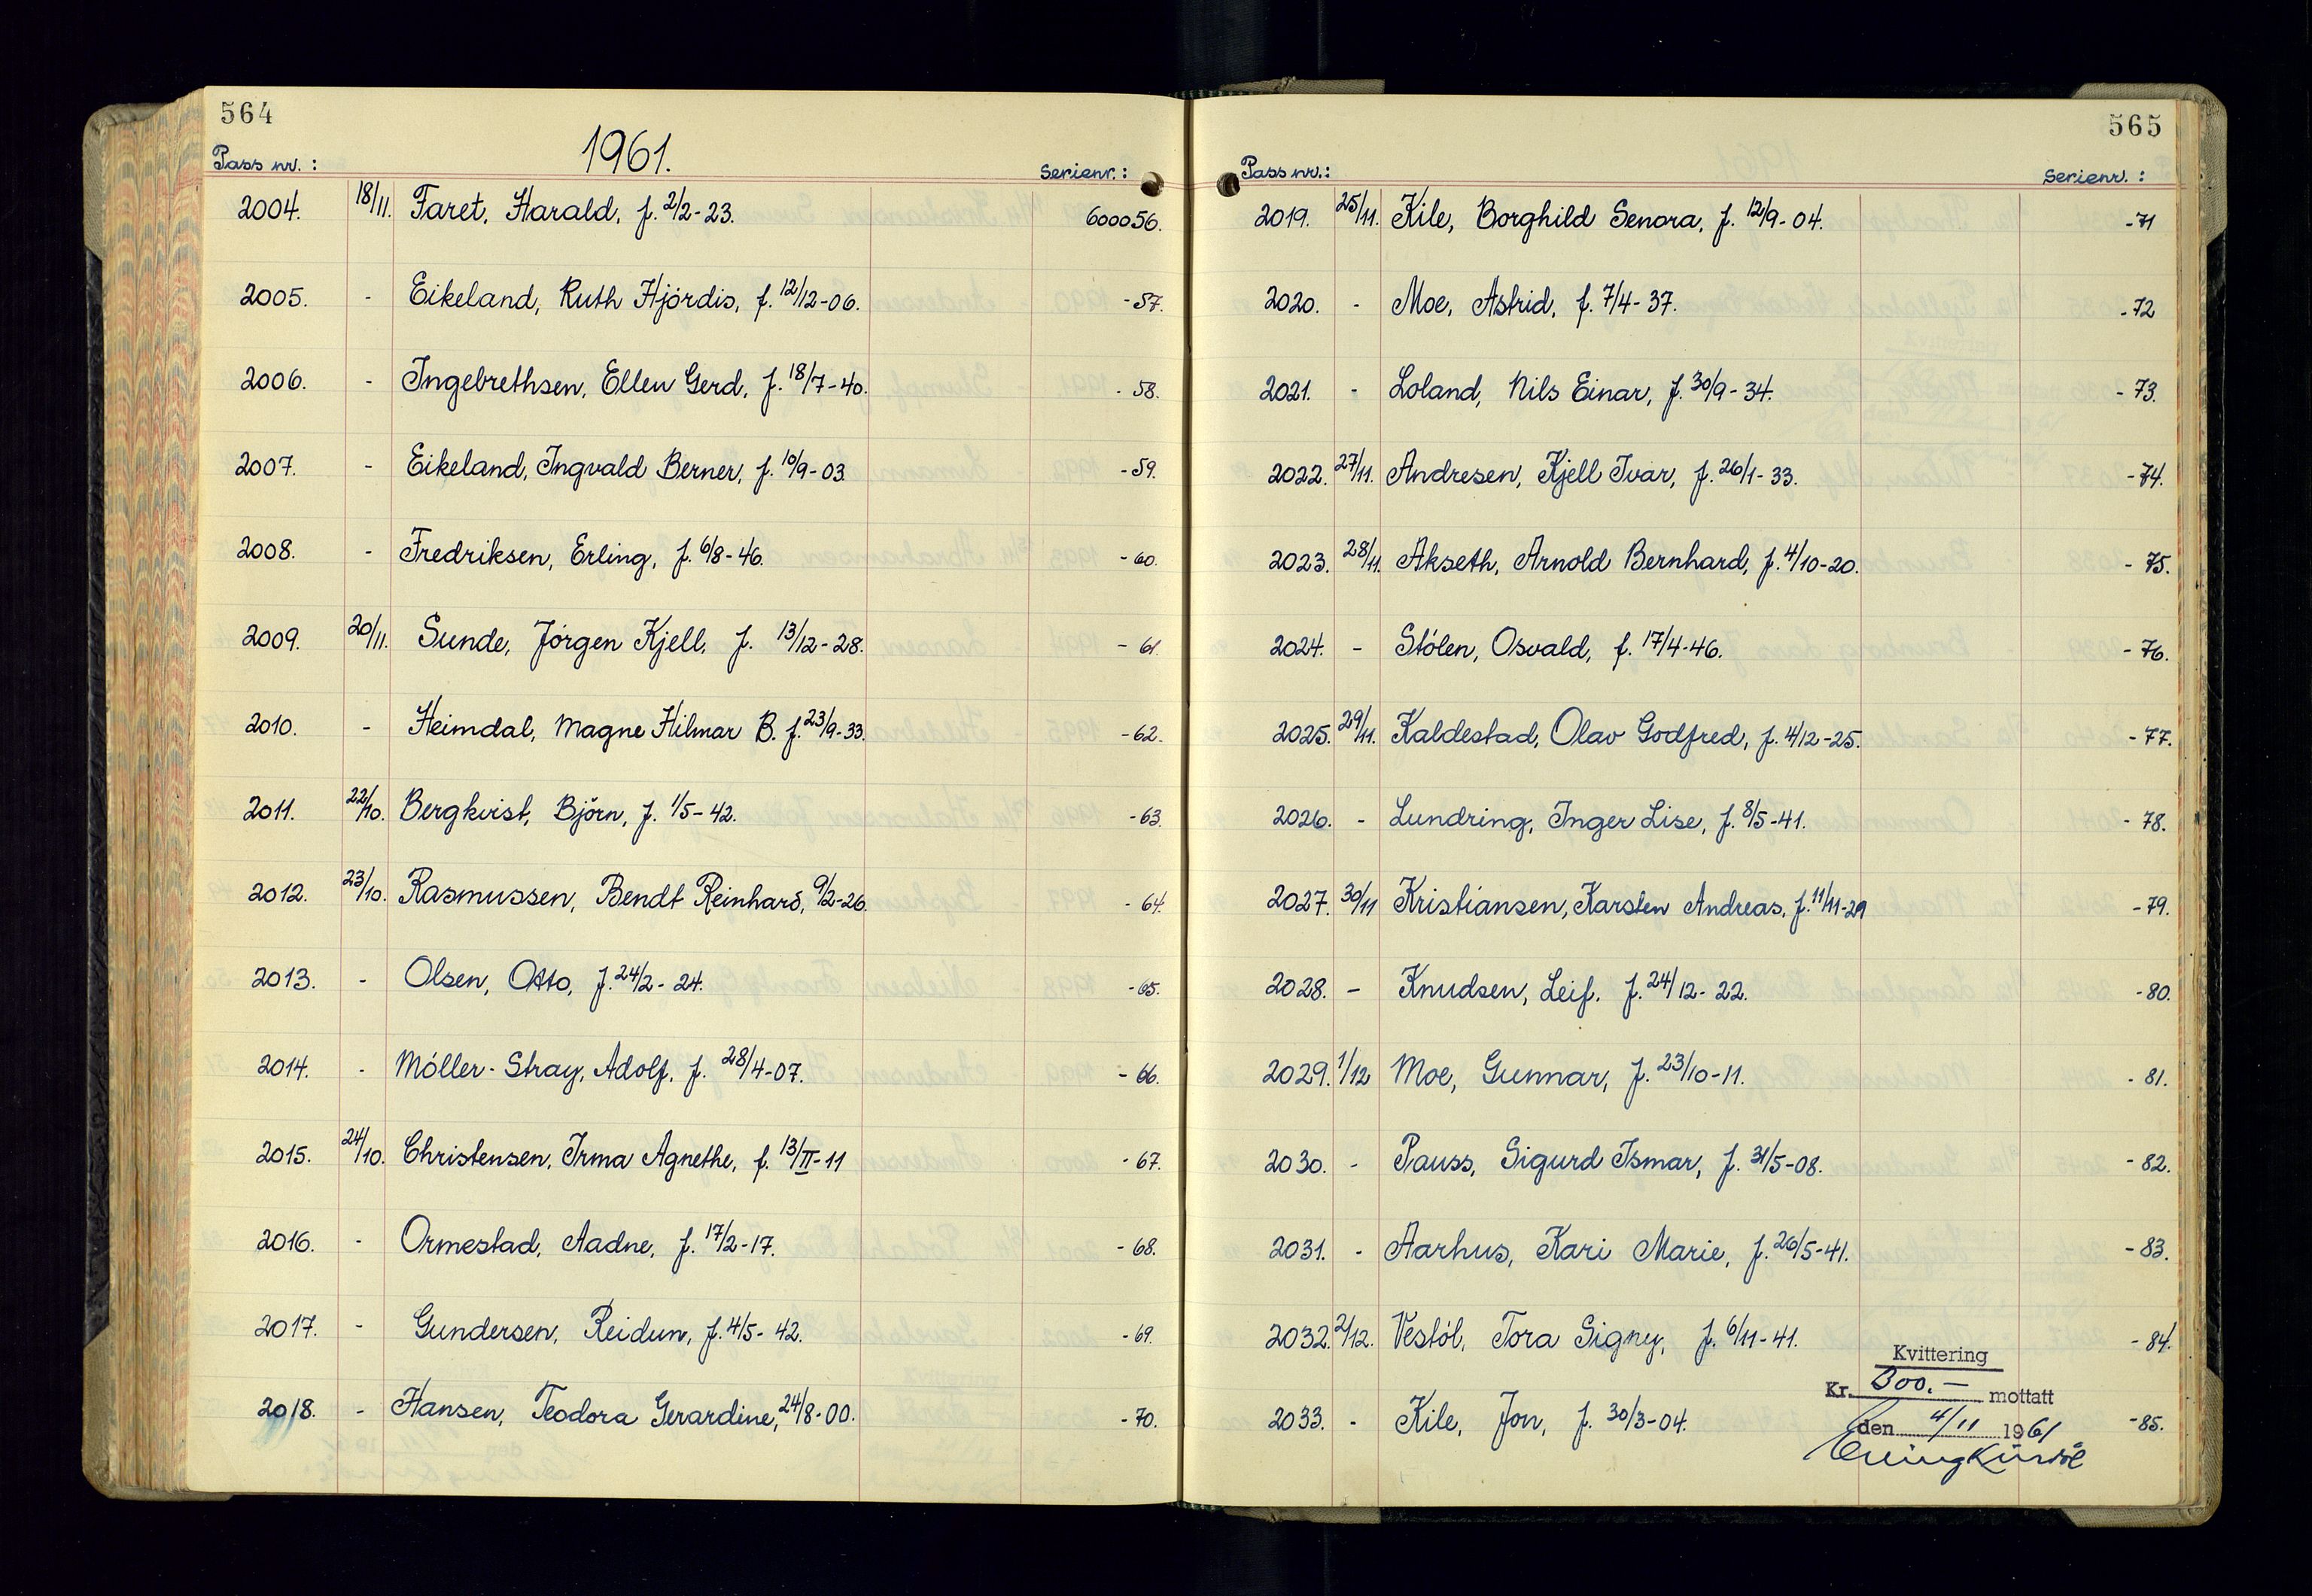 564
1961.
Pass nr.: Serienr.:
2004. 18/11. Faret, Harald, f. 2/2-23. 600056.
2005. - Eikeland, Ruth Hjördis, f. 12/12-06. -57.
2006. - Ingebrethsen, Ellen Gerd, f. 18/7-40. -58.
2007. - Eikeland, Ingvald Berner, f. 10/9-03. -59.
2008. - Fredriksen, Erling, f. 6/8-46. -60.
2009. 20/11. Sunde, Jörgen Kjell, f. 13/12-28. -61.
2010. - Heimdal, Magne Hilmar B. f. 23/9-33. -62.
2011. 22/10. Bergkvist, Björn, f. 1/5-42. -63.
2012. 23/10. Rasmussen, Bendt Reinhard, 9/2-26. -64.
2013. - Olsen, Otto, f. 24/2-24. -65.
2014. - Möller-Stray, Adolf, f. 28/4-07. -66.
2015. 24/10. Christensen, Irma Agnethe, f. 13/II-11 -67.
2016. - Ormestad, Aadne, f. 17/2-17. -68.
2017. - Gundersen, Reidun, f. 4/5-42. -69.
2018. - Hansen, Teodora Gerardine, 24/8-00. -70.
565
Pass nr.: Serienr.:
2019. 25/11. Kile, Borghild Senora, f. 12/9-04. -71
2020. - Moe, Astrid, f. 7/4-37. -72
2021. - Loland, Nils Einar, f. 30/9-34. -73.
2022. 27/11. Andresen, Kjell Ivar, f. 26/1-33. -74.
2023. 28/11. Akseth, Arnold Bernhard, f. 4/10-20. -75.
2024. - Stölen, Osvald, f. 17/4-46. -76.
2025. 29/11. Kaldestad, Olav Godfred, f. 4/12-25. -77.
2026. - Lundring, Inger Lise, f. 8/5-41. -78.
2027. 30/11 Kristiansen, Karsten Andreas, f. 11/11-29 -79.
2028. - Knudsen, Leif, f. 24/12-22. -80.
2029. 1/12 Moe, Gunnar, f. 23/10-11. -81.
2030. - Pauss, Sigurd Ismar, f. 31/5-08. -82.
2031. - Aarhus, Kari Marie, f. 26/5-41. -83.
2032. 2/12. Vestöl, Tora Signy, f. 6/11-41. -84.
2033. - Kile, Jon, f. 30/3-04. -85.
Kvittering
Kr. 300.- mottatt
den 4/11 1961